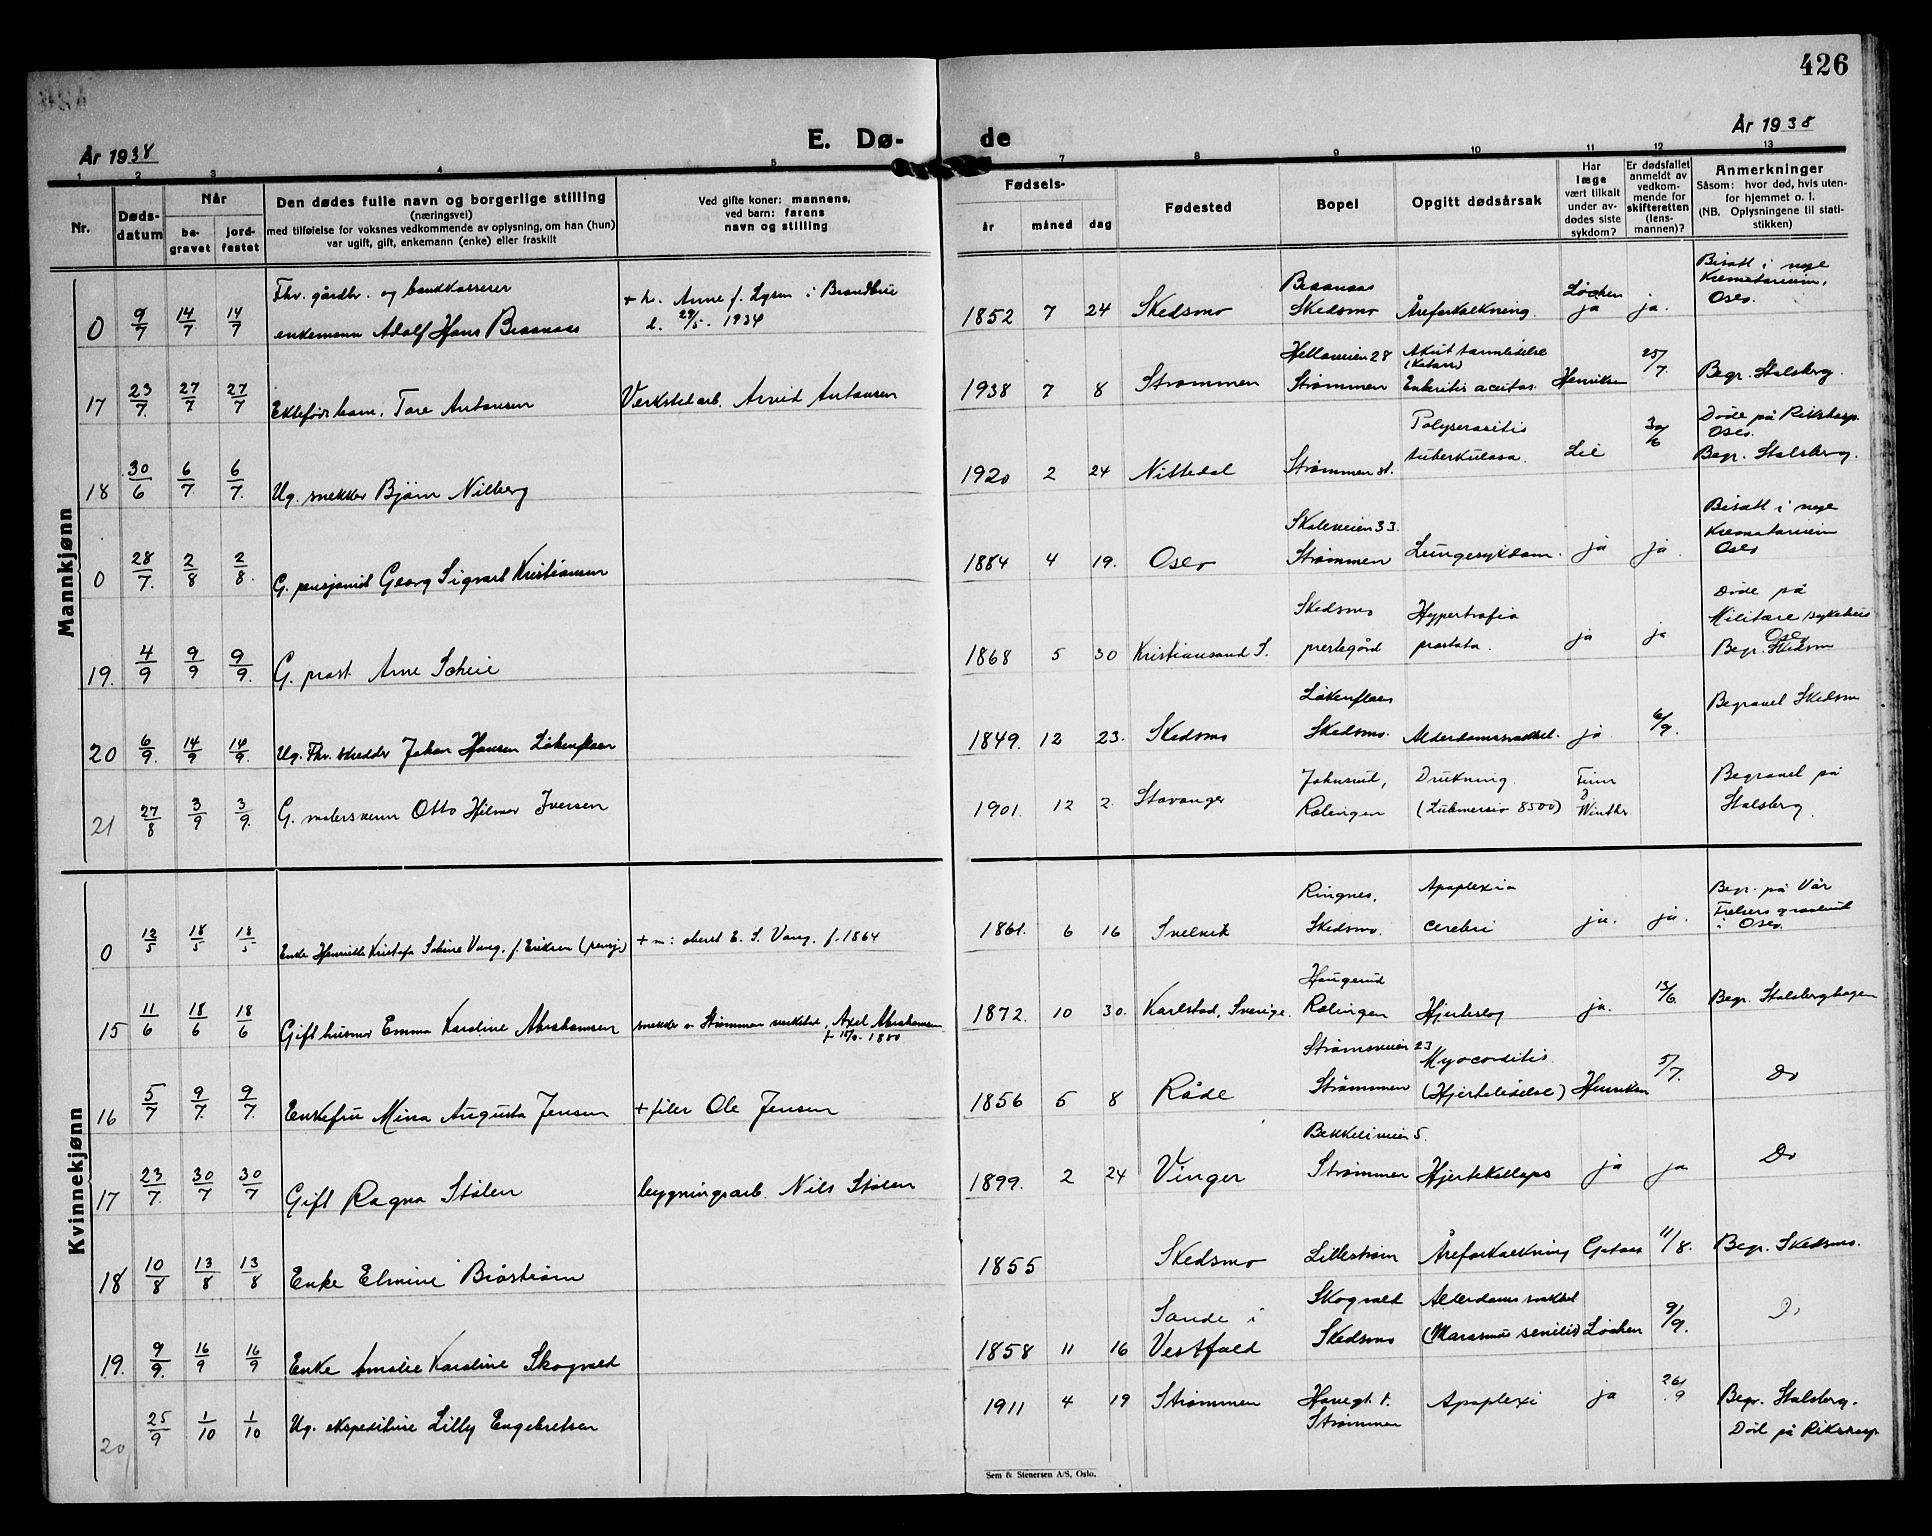 426
År 1938
E. Dø-
de
År 1938
1 2 3 4 5 7 8 9 10 11 12 13
Nr.
Døds-
datum
Når
be-
gravet
jord-
festet
Den dødes fulle navn og borgerlige stilling
(næringsvei)
med tilføielse for voksnes vedkommende av oplysning, om han (hun)
var ugift, gift, enkemann (enke) eller fraskilt
Ved gifte koner: mannens,
ved barn: farens
navn og stilling
Fødsels-
år måned dag
Fødested
Bopel
Opgitt dødsårsak
Har
læge
vært tilkalt
under av-
dødes siste
sykdom?
Er dødsfallet
anmeldt av
vedkom-
mende for
skifteretten
(lens-
mannen)?
Anmerkninger
Såsom: hvor død, hvis uten-
for hjemmet o. l.
(NB. Oplysningene til stati-
stikken)
Mannkjønn
0 9/7 14/7 14/7 Fhv. gårdbr. og bankkasserer
enkemann Adolf Hans Braanaas
+ h. Anne f. Lysen i Brandbue
d. 29/5 - 1934
1852 7 24 Skedsmo
Braanaas
Skedsmo
Åreforkalkning.
Løchen
ja
ja.
Bisatt i nye
Krematorium,
Oslo.
17 23/7. 27/7 27/7 Ektefødt barn, Tore Antonsen
Verkstedarb. Arvid Antonsen
1938 7 8 Strømmen
Hellaveien 28
Strømmen
Akut tarmlidelse
(Katarr)
Enteritis acutas.
Henriksen
25/7.
Begr. Stalsberg.
18 30/6 6/7. 6/7. Ug. snekker Bjørn Nilberg
1920 2 24 Nittedal
Strømmen st.
Polyserositis
tuberkulosa.
Lie
30/6
Døde på Rikshosp.
Oslo.
Begr. Stalsberg.
0 28/7. 2/8 2/8. G. pensjonist Georg Sigvart Kristiansen
1884 4 19. Oslo
Skoleveien 33.
Strømmen
Lungesykdom.
ja
ja.
Bisatt i nye
Krematorium
Oslo
19. 4/9 9/9 9/9. G. prost Arne Scheie
1868 5 30 Kristiansand S.
Skedsmo
prestegård
Hypertrofia
prostata.
ja
ja
Døde på
Militære sykehus
Oslo
Begr. Skedsmo
20 6/9. 14/9 14/9. Ug. Fhv. skredder Johan Hansen Løkenflaen
1849. 12 23. Skedsmo
Løkenflaen
Skedsmo.
Alderdomssvakhet.
ja
6/9.
Begravet Skedsmo
21 27/8 3/9 3/9. G. malersvenn Otto Hilmar Iversen
1901. 12 2. Stavanger
Johnsrud,
Rælingen
Drukning.
(Submersio 8500)
Winther
Begravet på
Stalsberg
Kvinnekjønn
0 12/5 18/5 18/5 Enke Henriette Kristofa Sabine Vang, f. Eriksen (pensj.)
+ m: oberst E. S. Vang. f. 1864
1861. 6 16 Svelvik
Ringnes,
Skedsmo.
Apoplexia
cerebri
ja.
ja.
Begr. på Vår
Frelsers gravlund
i Oslo.
15 11/6 18/6 18/6 Gift husmor Emma Karoline Abrahamsen
snekker v. Strømmen verksted, Axel Abrahamsen
1872. 10 30. Karlstad, Sverige.
Haugerud
Rælingen
Hjerteslag
ja.
13/6.
Begr. Stalsberghagen
16 5/7 9/7. 9/7. Enkefru Mina Augusta Jensen
+ filer Ole Jensen
1856 5 8 Råde
Strømsveien 23
Strømmen
Myocorditis.
(Hjertelidelse)
Henriksen
5/7.
Do
17 23/7. 30/7 30/7 Gift Ragna Stølen
bygningsarb. Nils Stølen
1899. 2 24 Vinger
Bekkeliveien 5.
Strømmen
Hjertekollaps
ja
ja
Do
18 10/8 13/8 13/8 Enke Elmine Brøstrøm
1855
Skedsmo
Lillestrøm
Åreforkalkning
Gotaas
11/8.
Begr. Skedsmo.
19. 9/9. 16/9 16/9 Enke Amalie Karoline Skogvold
1858 11 16
Sande i
Vestfold
Skogvold
Skedsmo
Alderdomssvakhet
(Marasmus senilis)
Løchen
9/9.
Do
20 25/9 1/10 1/10 Ug. ekspeditrise Lilly Engebretsen
1911 4 19 Strømmen
Strømmen
Apoplexi
ja
26/9
Begr. Stalsberg.
Død på Rikshosp.
Sem & Stenersen A/S, Oslo.